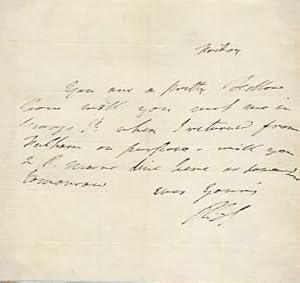 Friday
You are a pretty Fellow
how will you meet me in
George St. when I returned from
Fulham on purpose - will you
dine here
tomorrow
ever Yours